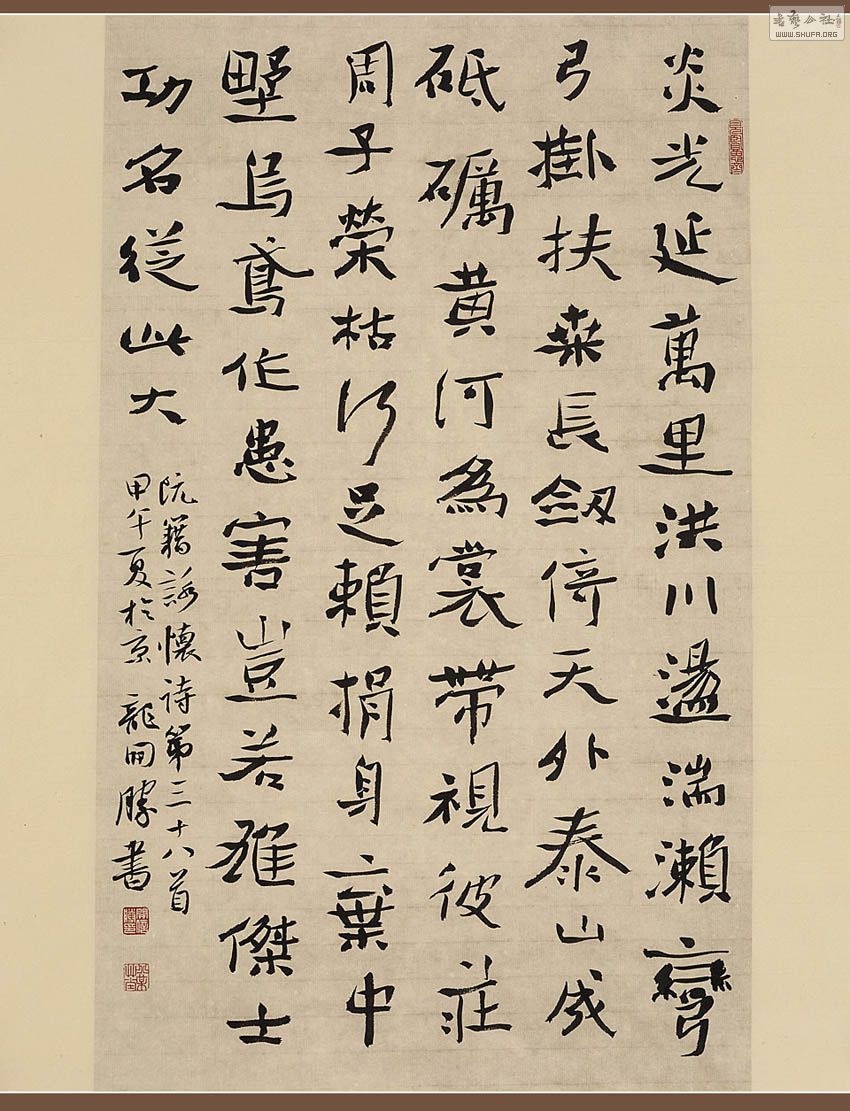 炎光延萬里洪川盪湍瀨彎
弓掛扶桑長劒倚天外泰山成
砥礪黄河為裳帶視彼莊
周子榮枯何足賴捐身棄中
野烏鳶作患害豈若雄傑士
功名從此大
阮籍詠懷詩第三十八首
甲午夏於京 龍開勝書
書藝公社
WWW.SHUFA.ORG